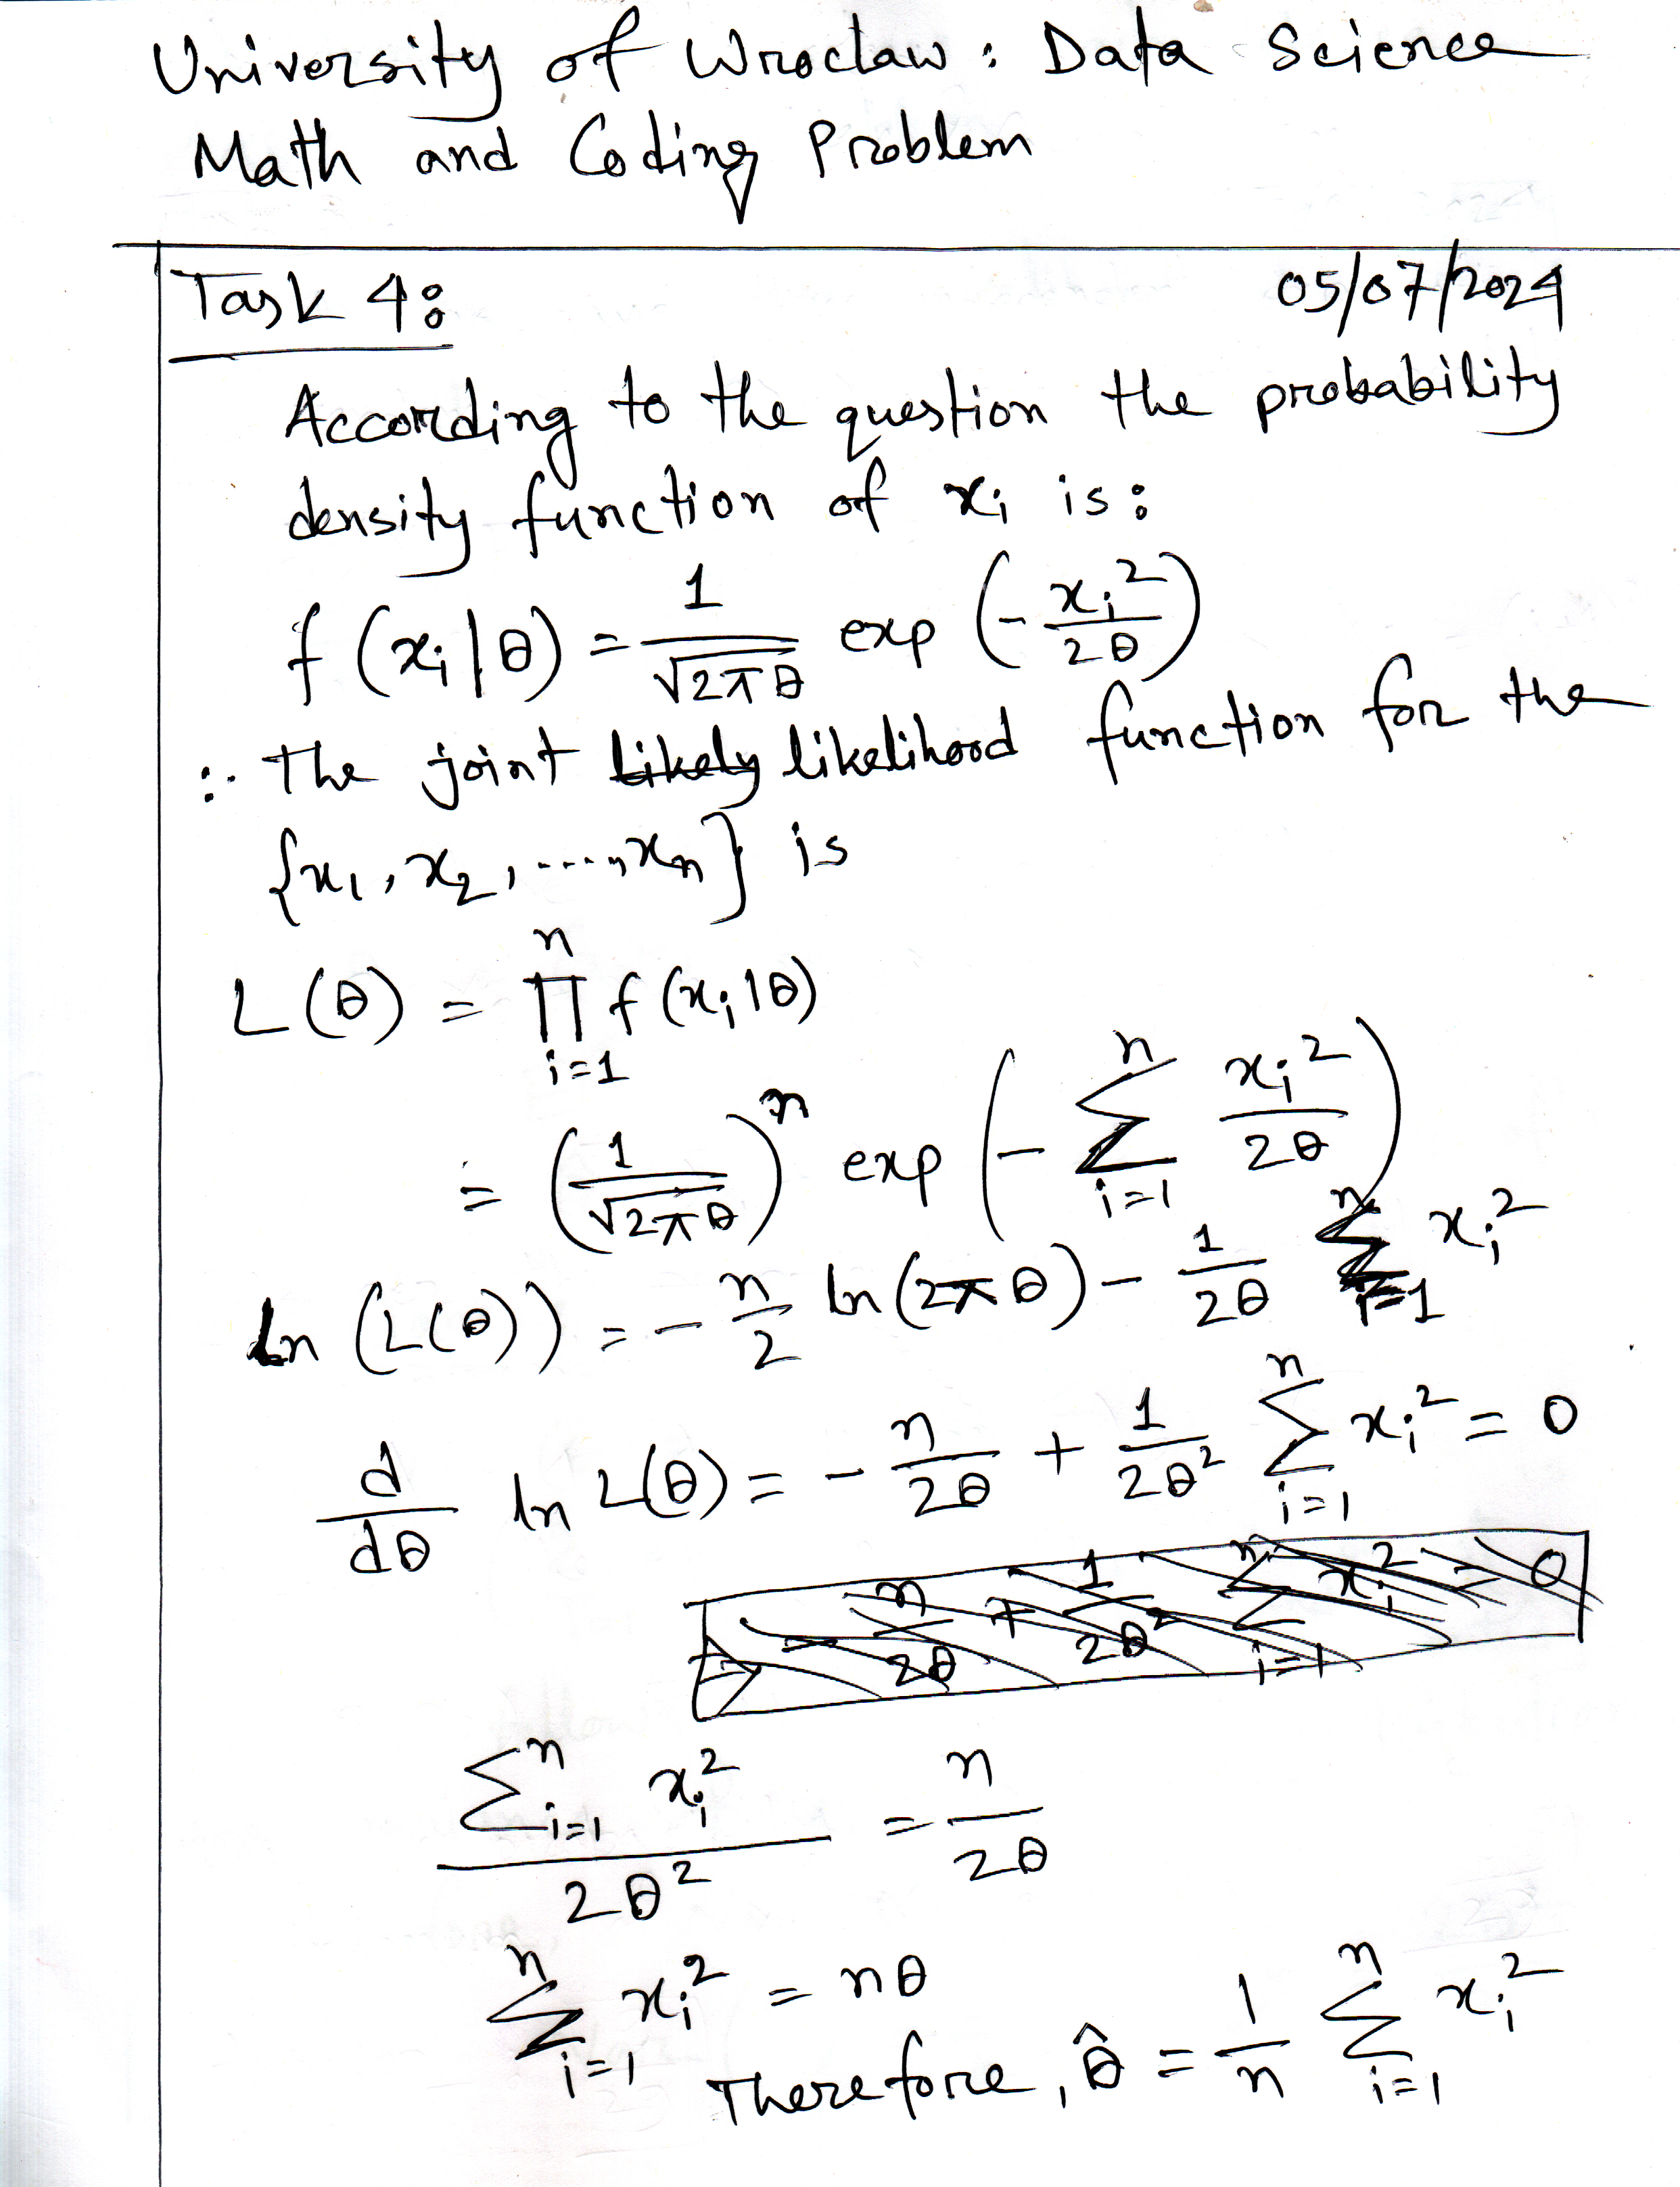 University of Wroclaw : Data Science
Math and Coding Problem
Task 4: 05/07/2024
According to the question the probability
density function of xᵢ is:
f (xᵢ|θ) = 1/√(2πθ) exp (- xᵢ²/2θ)
∴ The joint Likely likelihood function for the
{x₁, x₂, ...., xₙ} is
L(θ) = ∏ᵢ₌₁ⁿ f(xᵢ|θ)
= (1/√(2πθ))ⁿ exp (- ∑ᵢ₌₁ⁿ xᵢ²/2θ)
ln (L(θ)) = - n/2 ln(2πθ) - 1/2θ ∑ᵢ₌₁ⁿ xᵢ²
d/dθ ln L(θ) = - n/2θ + 1/2θ² ∑ᵢ₌₁ⁿ xᵢ² = 0
⇒ - n/2θ + 1/2θ² ∑ᵢ₌₁ⁿ xᵢ² = 0
∑ᵢ₌₁ⁿ xᵢ² / 2θ² = n/2θ
∑ᵢ₌₁ⁿ xᵢ² = nθ
Therefore, θ̂ = 1/n ∑ᵢ₌₁ⁿ xᵢ²